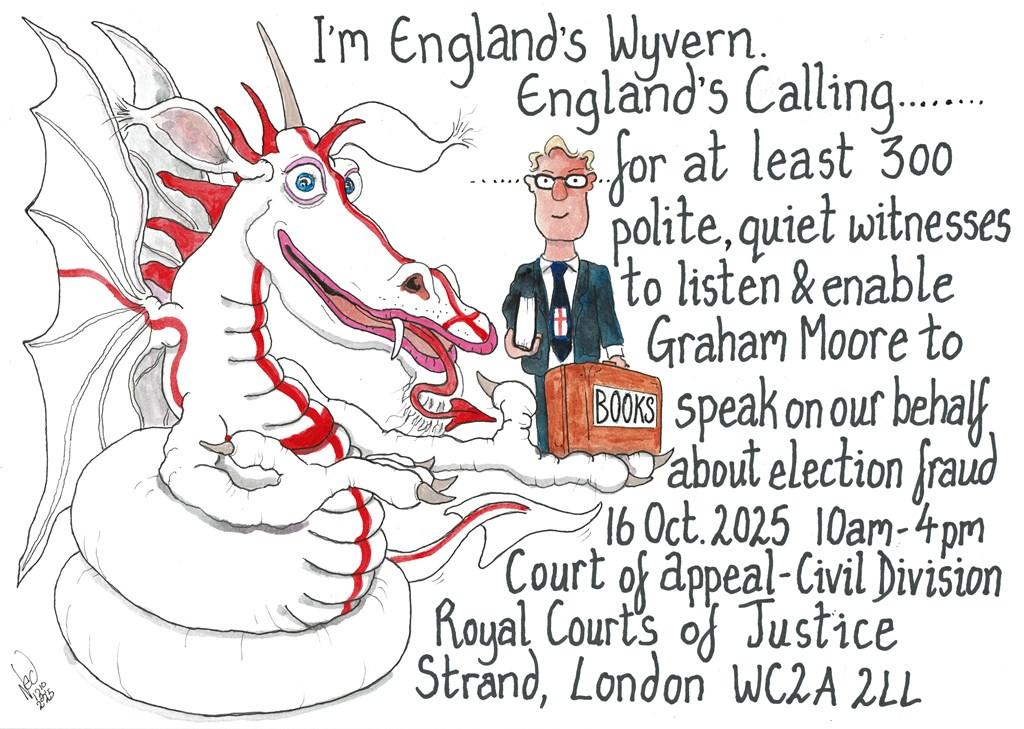 I'm England's Wyvern.
England's Calling.........
......for at least 300
polite, quiet witnesses
to listen & enable
Graham Moore to
BOOKS
speak on our behalf
about election fraud
16 Oct. 2025 10am-4pm
Court of appeal-Civil Division
Royal Courts of Justice
Strand, London WC2A 2LL